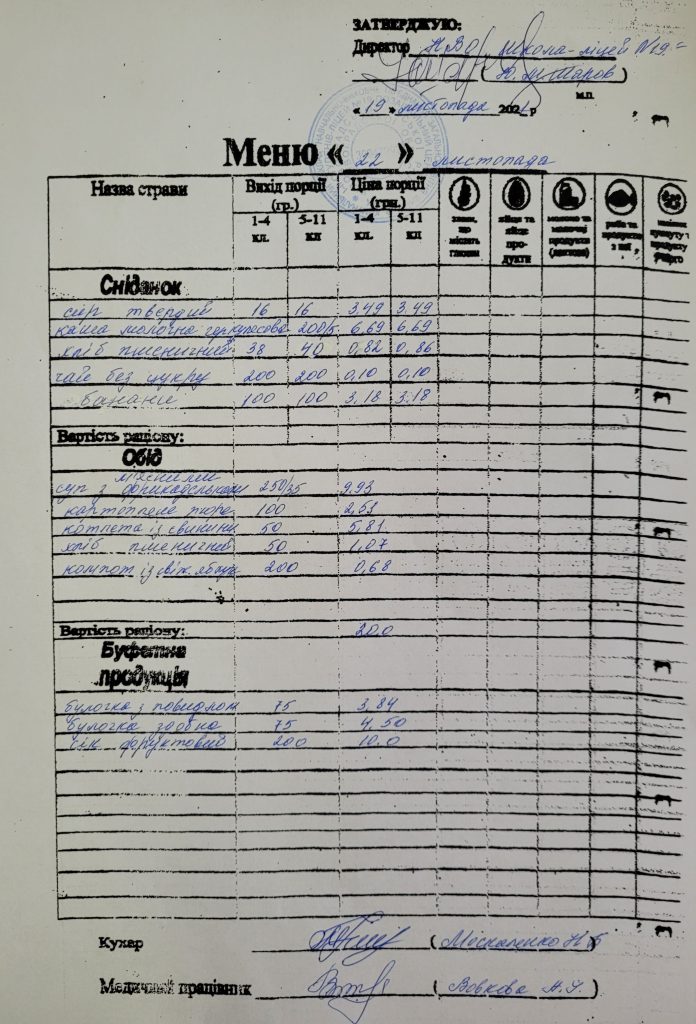 ЗАТВЕРДЖУЮ:
Директор НВО Школа-ліцей №19
(Ю.М. Шаров)
м.п.
«19» листопада 2021 р
Меню «22» листопада
Назва страви Вихід порції (гр.) Ціна порції (грн.)
1-4 кл. 5-11 кл 1-4 кл. 5-11 кл
злаки, що містять глютен
яйця та яйце продукти
молоко та молочні продукти (лактоза)
риба та продукти з неї
Сніданок
сир твердий 16 16 3,49 3,49
каша молочна геркулесова 200/5 6,69 6,69
хліб пшеничний 38 40 0,82 0,86
чай без цукру 200 200 0,10 0,10
банани 100 100 3,18 3,18
Вартість раціону:
Обід
суп з м'ясними фрикадельками 250/35 9,93
картопляне пюре 100 2,51
котлета із свинини 50 5,81
хліб пшеничний 50 1,07
компот із свіж. яблук 200 0,68
Вартість раціону: 20.0
Буфетна продукція
булочка з повидлом 75 3,84
булочка здобна 75 4,50
сік фруктовий 200 10.0
Кухар (Москаленко Н Б)
Медичний працівник (Вовкова А.)